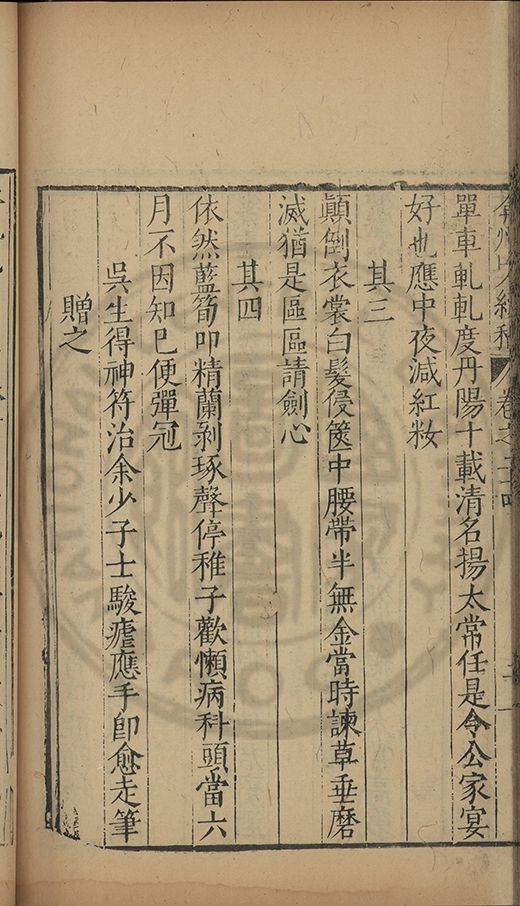 弇州山人續稿 卷之二十四
單車軋軋度丹陽十載清名揚太常任是令公家宴
好也應中夜減紅妝
其三
顛倒衣裳白髮侵篋中腰帶半無金當時諫草垂磨
滅猶是區區請劍心
其四
依然藍筍叩精蘭剝琢聲停稚子歡懶病科頭當六
月不因知己便彈冠
吳生得神符治余少子士駿瘧應手卽愈走筆
贈之